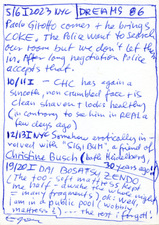 5/6 I 2023 NYC DREAMS 86
Paolo Girotto comes + he brings
COKE, The Police want to search
our room but we don't let the
in. After long negotiation Police
accepts that.
10/11 I – CHC has again a
smooth, non crumbled face + is
clean shaven + looks healthy
(in contrary to see him in REAL a
few days ago)
12/13 I NYC Somehow erotically in-
volved with "SIGI BUH", a friend of
Christine Busch (late Heidelberg,
30 years ago!!)
19/20 I DAI BOSATSU ZENDO
(The too soft mattress kept me
half-awake +
many fragments) ok: while I
am in a public pool, nothing
matters … the rest I forgot!